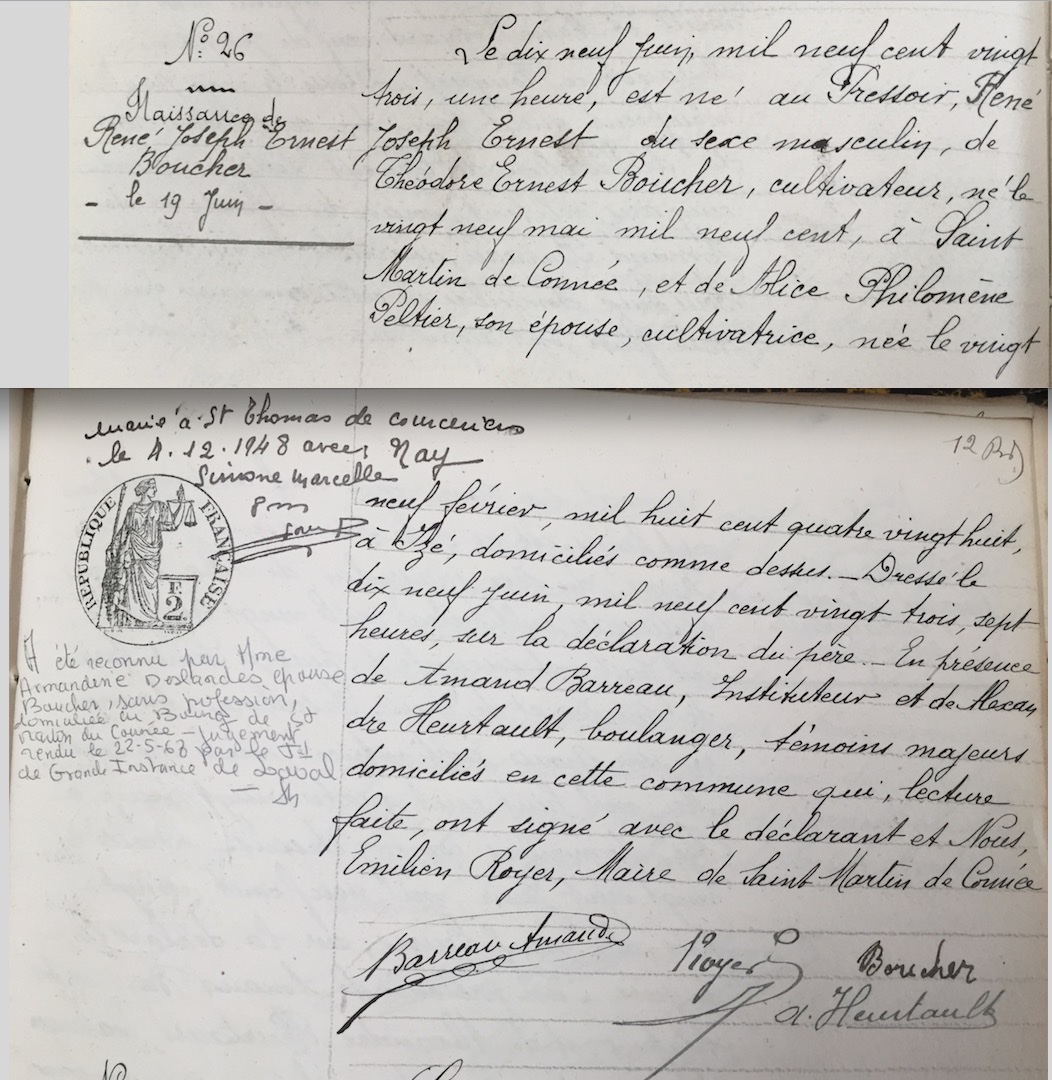 No: 26
Naissance de
René Joseph Ernest
Boucher
- le 19 Juin -
Le dix neuf Juin, mil neuf cent vingt
trois, une heure, est né au Pressoir, René
Joseph Ernest du sexe masculin, de
Théodore Ernest Boucher, cultivateur, né le
vingt neuf mai mil neuf cent, à Saint
Martin de Connée, et de Alice Philomène
Peltier, son épouse, cultivatrice, née le vingt
12
marié à St Thomas de courceriers
le 4.12.1948 avec Nay
Simone Marcelle
RÉPUBLIQUE FRANÇAISE
E
2
A été reconnu par Mme
Armandine Deslandes épouse
Boucher, sans profession,
domiciliée au Bourg de St
Martin du Connée - jugement
rendu le 22-5-68 par le
de Grande Instance de Laval
neuf février, mil huit cent quatre vingt huit,
à Izé, domiciliés comme dessus. - Dressé le
dix neuf Juin, mil neuf cent vingt trois, sept
heures, sur la déclaration du père. - En présence
de Amand Barreau, Instituteur et de Alexan
dre Heurtault, boulanger, témoins majeurs
domiciliés en cette commune qui, lecture
faite, ont signé avec le déclarant et Nous,
Emilien Royer, Maire de Saint Martin de Connée
Barreau Amand Royer Boucher
A. Heurtault